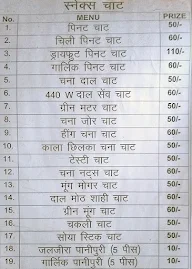 स्नेक्स चाट
No. MENU PRIZE
1. पिनट चाट 50/-
2. चिली पिनट चाट 60/-
3. ड्रायफुट पिनट चाट 110/-
4. गार्लिक पिनट चाट 60/-
5. चना दाल चाट 50/-
6. 440 W दाल सेव चाट 60/-
7. ग्रीन मटर चाट 50/-
8. चना जोर चाट 50/-
9. हींग चना चाट 60/-
10. काला छिलका चना चाट 50/-
11. टेस्टी चाट 50/-
12. चना नट्स चाट 60/-
13. मूंग मोगर चाट 50/-
14. दाल मोठ शाही चाट 50/-
15. ग्रीन मूंग चाट 50/-
16. चकली चाट 50/-
17. सोया स्टिक चाट 50/-
18. जलजीरा पानीपुरी (5 पीस) 10/-
19. गार्लिक पानीपुरी (5 पीस) 10/-